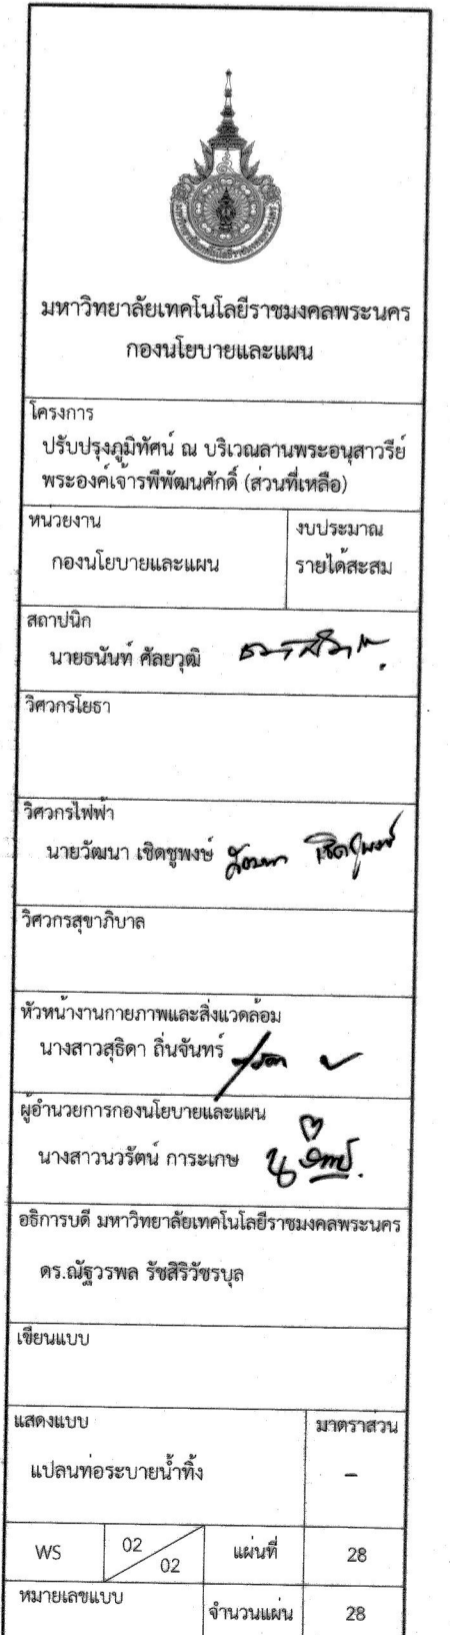 มหาวิทยาลัยเทคโนโลยีราชมงคลพระนคร
กองนโยบายและแผน
โครงการ
ปรับปรุงภูมิทัศน์ ณ บริเวณลานพระอนุสาวรีย์
พระองค์เจ้ารพีพัฒนศักดิ์ (ส่วนที่เหลือ)
หน่วยงาน
กองนโยบายและแผน
งบประมาณ
รายได้สะสม
สถาปนิก
นายธนันท์ ศัลยวุฒิ
วิศวกรโยธา
วิศวกรไฟฟ้า
นายวัฒนา เชิดชูพงษ์
วัฒนา เชิดชูพงษ์
วิศวกรสุขาภิบาล
หัวหน้างานกายภาพและสิ่งแวดล้อม
นางสาวสุธิดา ถิ่นจันทร์
ผู้อำนวยการกองนโยบายและแผน
นางสาวนวรัตน์ การะเกษ
อธิการบดี มหาวิทยาลัยเทคโนโลยีราชมงคลพระนคร
ดร.ณัฐวรพล รัชสิริวัชรบุล
เขียนแบบ
แสดงแบบ
แปลนท่อระบายน้ำทิ้ง
มาตราส่วน
-
WS
02
02
แผ่นที่
28
หมายเลขแบบ
จำนวนแผ่น
28